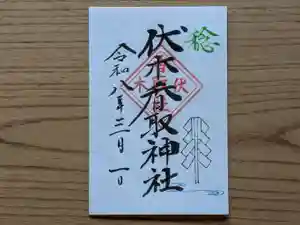 稔
伏木香取神社
令和八年三月一日